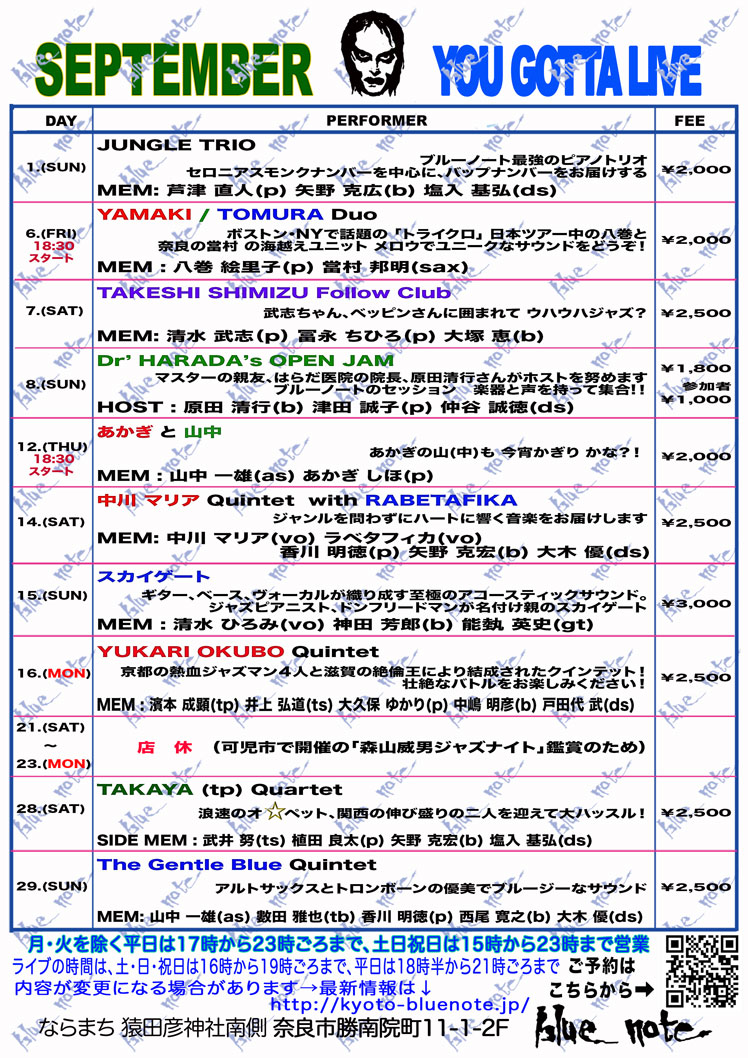 SEPTEMBER YOU GOTTA LIVE
DAY PERFORMER FEE
JUNGLE TRIO
1.(SUN)
ブルーノート最強のピアノトリオ
セロニアスモンクナンバーを中心に、バップナンバーをお届けする
¥2,000
MEM: 芦津 直人(p) 矢野 克広(b) 塩入 基弘(ds)
YAMAKI / TOMURA Duo
6.(FRI)
18:30
スタート
ボストン・NYで話題の「トライクロ」日本ツアー中の八巻と
奈良の當村 の海越えユニット メロウでユニークなサウンドをどうぞ!
¥2,000
MEM : 八巻 絵里子(p) 當村 邦明(sax)
TAKESHI SHIMIZU Follow Club
7.(SAT)
武志ちゃん、ベッピンさんに囲まれて ウハウハジャズ?
¥2,500
MEM: 清水 武志(p) 冨永 ちひろ(p) 大塚 恵(b)
Dr' HARADA's OPEN JAM
8.(SUN)
マスターの親友、はらだ医院の院長、原田清行さんがホストを努めます
ブルーノートのセッション 楽器と声を持って集合!!
¥1,800
参加者
¥1,000
HOST : 原田 清行(b) 津田 誠子(p) 仲谷 誠徳(ds)
あかぎ と 山中
12.(THU)
18:30
スタート
あかぎの山(中)も 今宵かぎり かな?!
¥2,000
MEM : 山中 一雄(as) あかぎ しほ(p)
中川 マリア Quintet with RABETAFIKA
14.(SAT)
ジャンルを問わずにハートに響く音楽をお届けします
¥2,500
MEM: 中川 マリア(vo) ラベタフィカ(vo)
香川 明徳(p) 矢野 克宏(b) 大木 優(ds)
スカイゲート
15.(SUN)
ギター、ベース、ヴォーカルが織り成す至極のアコースティックサウンド。
ジャズピアニスト、ドンフリードマンが名付け親のスカイゲート
¥3,000
MEM : 清水 ひろみ(vo) 神田 芳郎(b) 能勢 英史(gt)
YUKARI OKUBO Quintet
16.(MON)
京都の熱血ジャズマン4人と滋賀の絶倫王により結成されたクインテット!
壮絶なバトルをお楽しみください!
¥2,500
MEM : 濱本 成顕(tp) 井上 弘道(ts) 大久保 ゆかり(p) 中嶋 明彦(b) 戸田代 武(ds)
21.(SAT)
~
23.(MON)
店 休 (可児市で開催の「森山威男ジャズナイト」鑑賞のため)
TAKAYA (tp) Quartet
28.(SAT)
浪速のオ☆ペット、関西の伸び盛りの二人を迎えて大ハッスル!
¥2,500
SIDE MEM : 武井 努(ts) 植田 良太(p) 矢野 克宏(b) 塩入 基弘(ds)
The Gentle Blue Quintet
29.(SUN)
アルトサックスとトロンボーンの優美でブルージーなサウンド
¥2,500
MEM: 山中 一雄(as) 數田 雅也(tb) 香川 明徳(p) 西尾 寛之(b) 大木 優(ds)
月・火を除く平日は17時から23時ごろまで、土日祝日は15時から23時まで営業
ライブの時間は、土・日・祝日は16時から19時ごろまで、平日は18時半から21時ごろまで
内容が変更になる場合があります→最新情報は↓
http://kyoto-bluenote.jp/
ご予約は
こちらから➡
ならまち 猿田彦神社南側 奈良市勝南院町11-1-2F
blue note